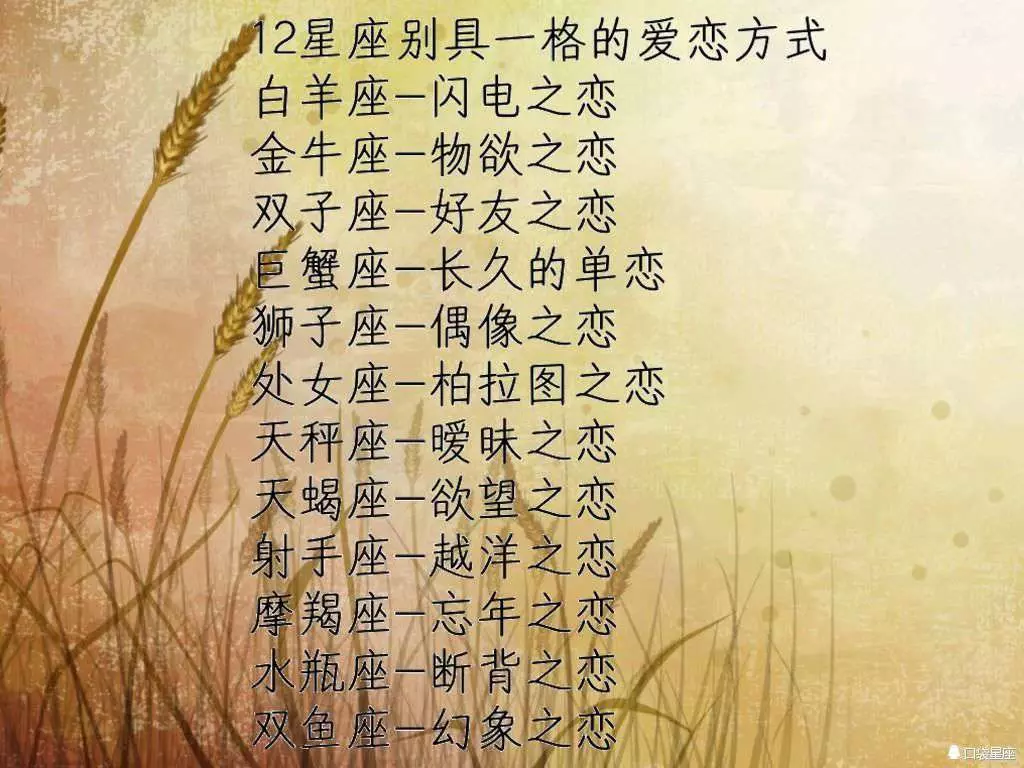 12星座别具一格的爱恋方式
白羊座–闪电之恋
金牛座–物欲之恋
双子座–好友之恋
巨蟹座–长久的单恋
狮子座–偶像之恋
处女座–柏拉图之恋
天秤座–暧昧之恋
天蝎座–欲望之恋
射手座–越洋之恋
摩羯座–忘年之恋
水瓶座–断背之恋
双鱼座–幻象之恋
口袋星座